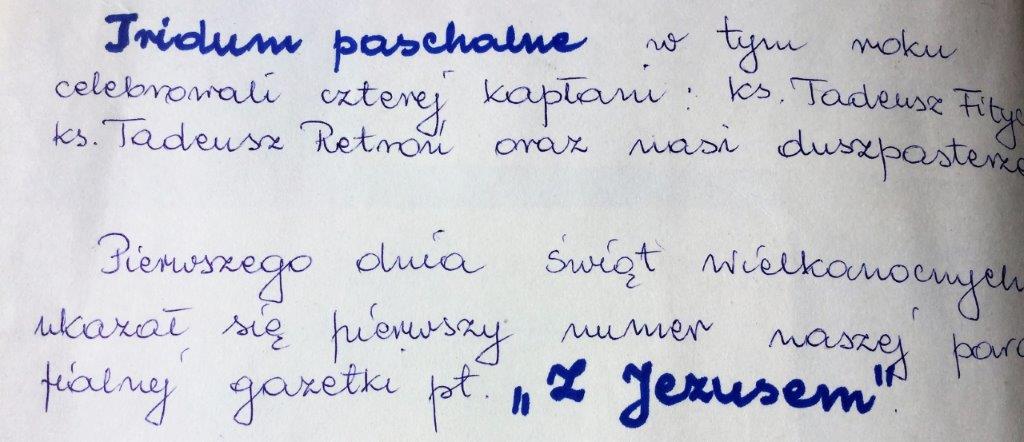 Tridum paschalne w tym roku
celebrowali czterej kapłani: ks. Tadeusz Fityc
ks. Tadeusz Retroń oraz nasi duszpasterze
Pierwszego dnia świąt wielkanocnych
ukazał się pierwszy numer naszej para
fialnej gazetki pt. „Z Jezusem".